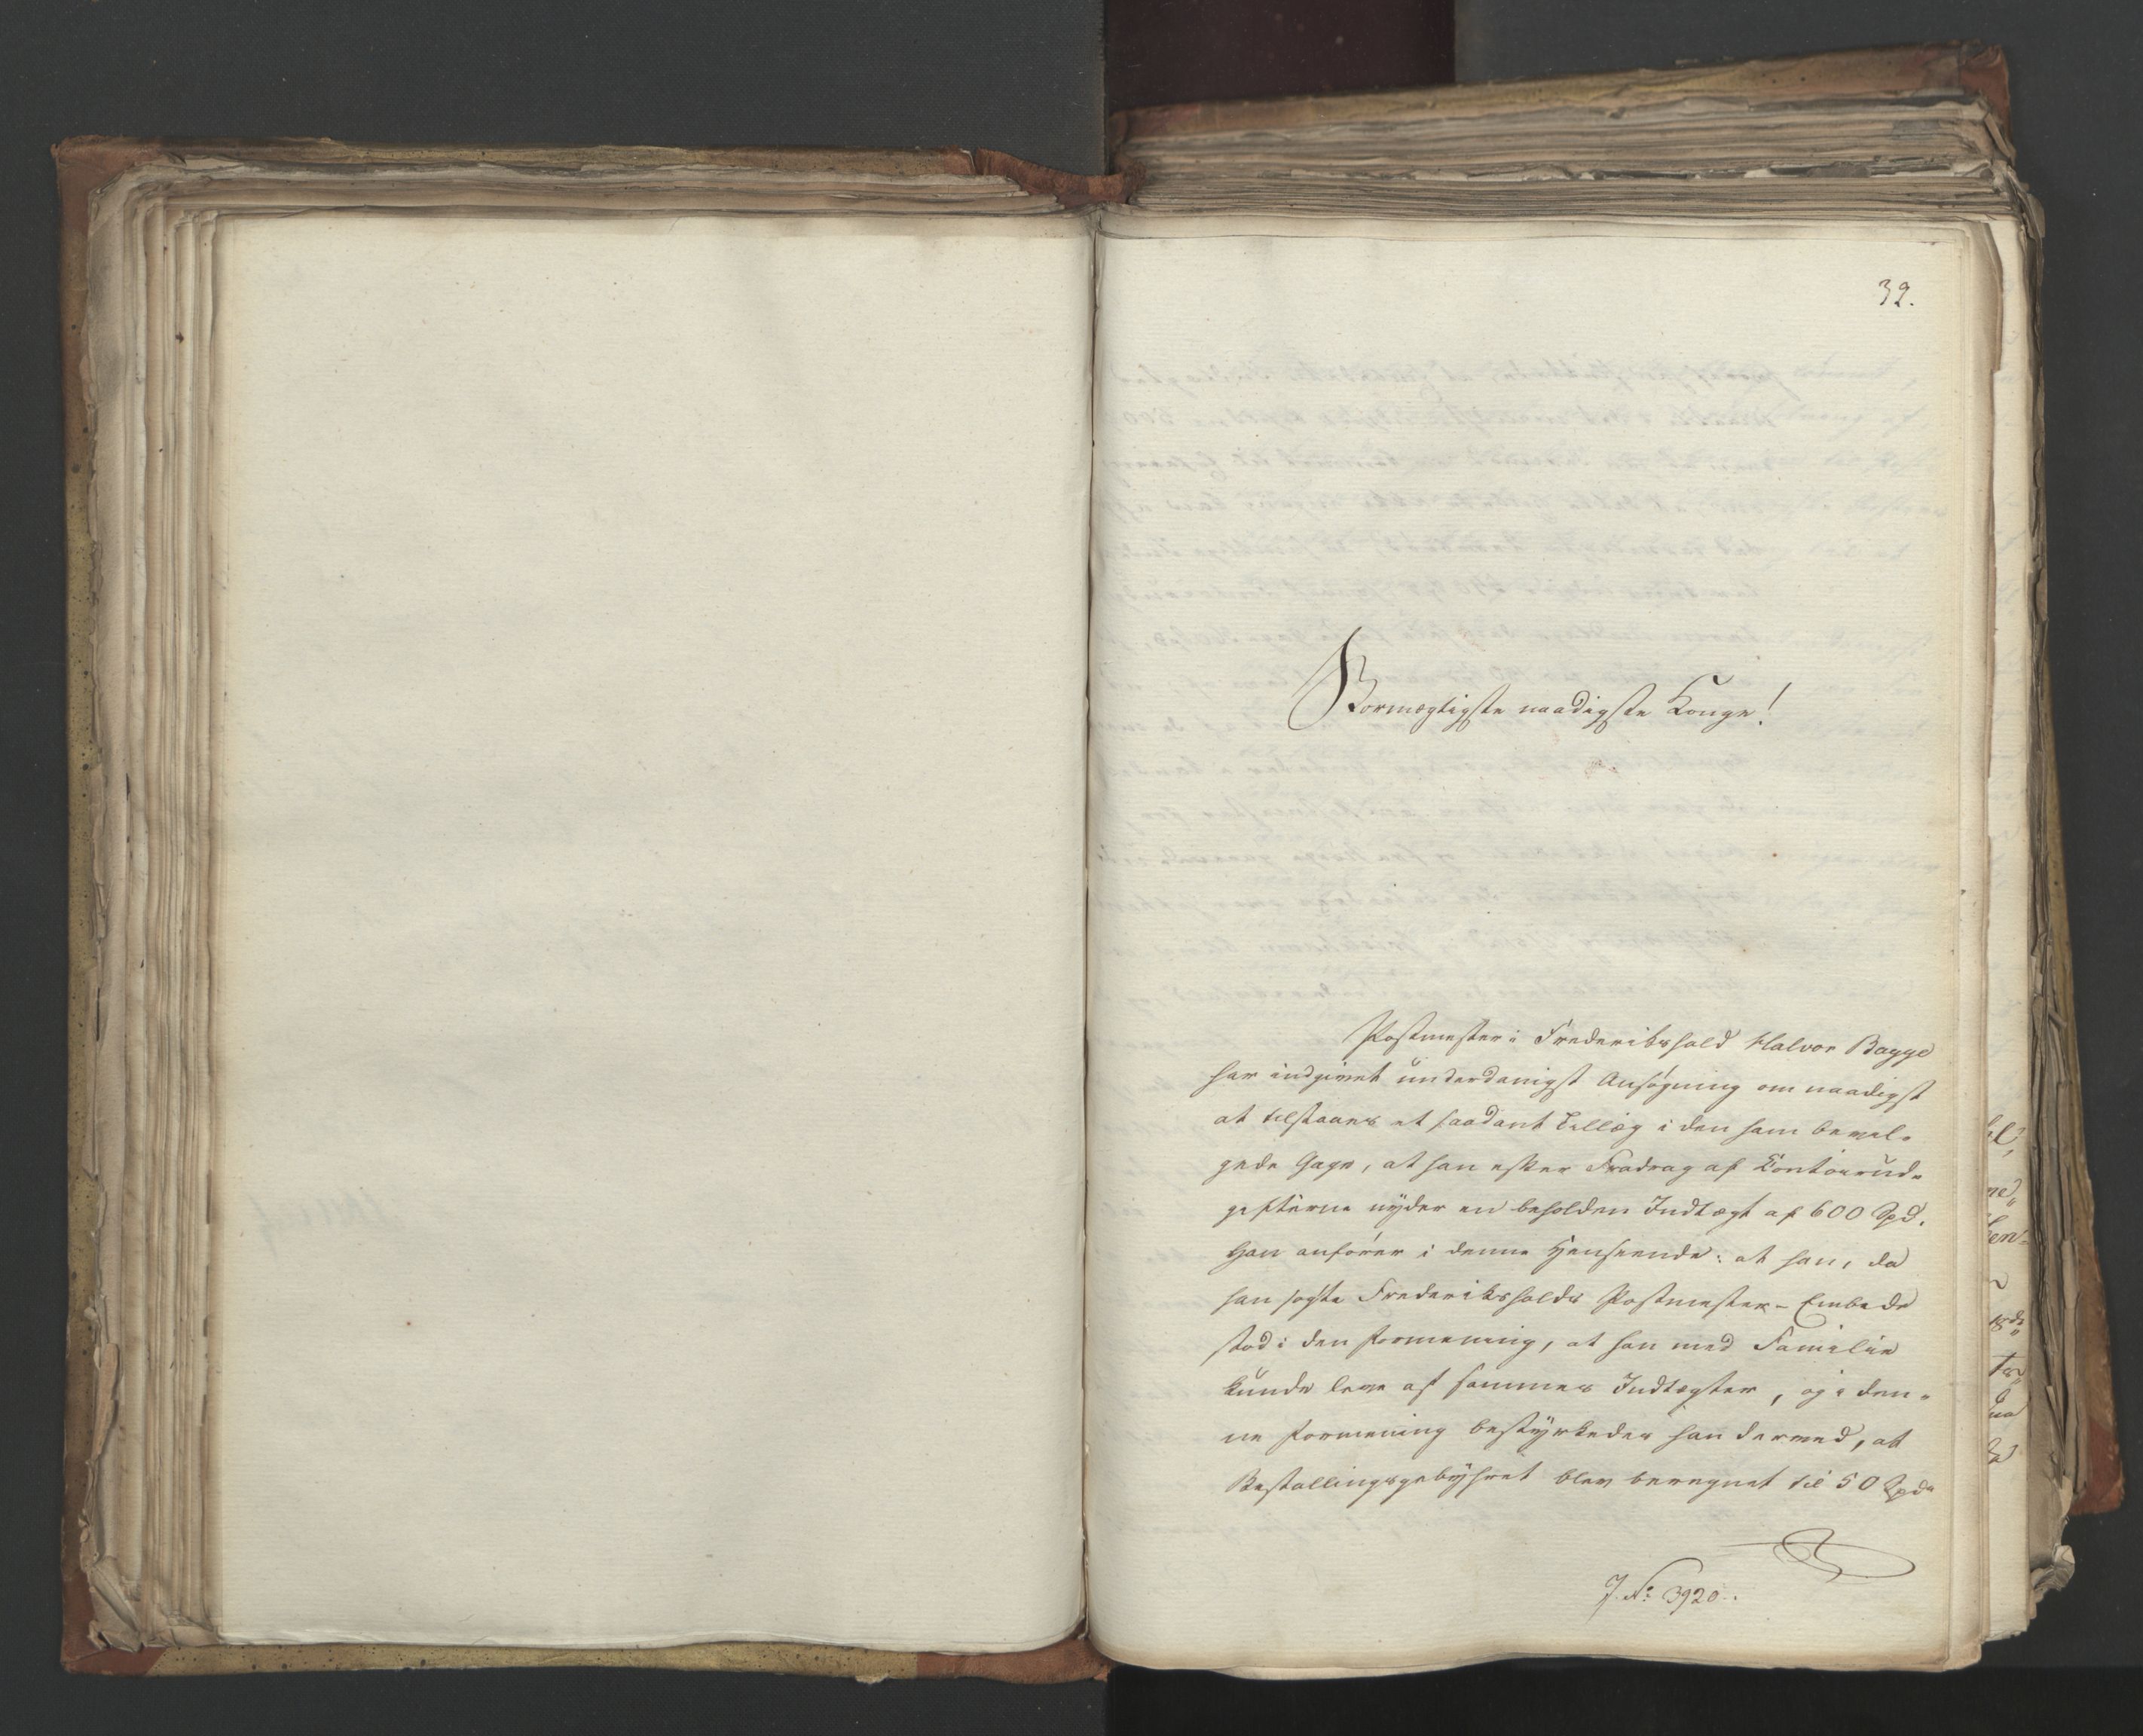 32.
Stormægtigste naadigste Konge!
Postmester i Frederikshald Halvor Bagge
har indgivet underdanigst Ansøgning om naadigst
at tilstaaes et saadant Tillæg i den ham bevil-
gede Gage, at han efter Fradrag af Contoirud-
gifterne nyder en beholden Indtægt af 600 Spd.
Han anfører i denne Henseende: at han, da
han søgte Frederikshalds Postmester-Embede
stod i den Formening, at han med Familie
kunde leve af sammes Indtægter, og i den-
ne Formening bestyrkedes han derved, at
Bestallingsgebyhret blev beregnet til 50 Spd
J. No 3920.